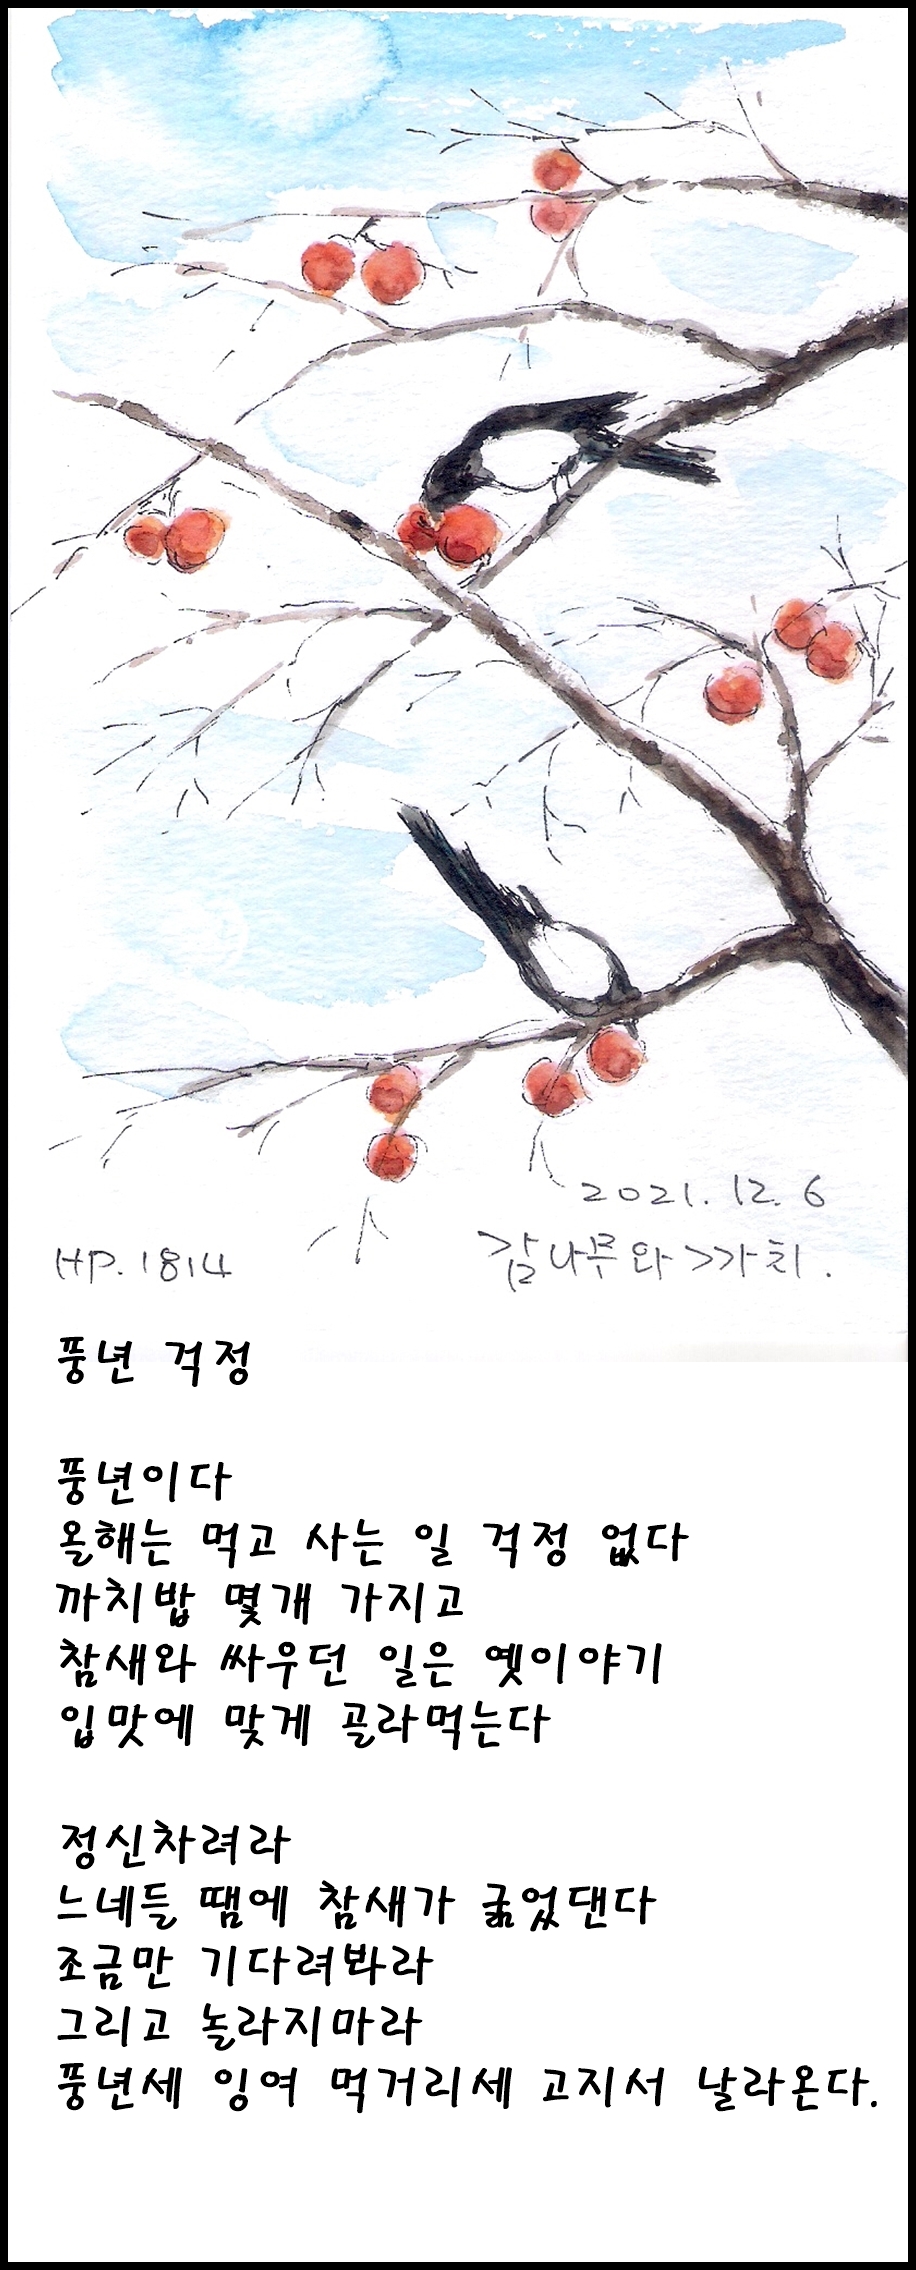 2021. 12. 6
HP. 1814
감나무와 까치.
풍년 걱정
풍년이다
올해는 먹고 사는 일 걱정 없다
까치밥 몇개 가지고
참새와 싸우던 일은 옛이야기
입맛에 맞게 골라먹는다
정신차려라
느네들 땜에 참새가 굶었댄다
조금만 기다려봐라
그리고 놀라지마라
풍년세 잉여 먹거리세 고지서 날라온다.